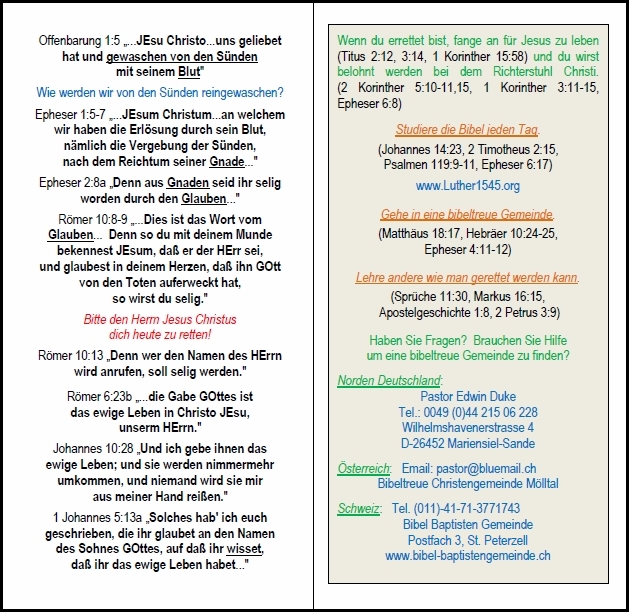 Offenbarung 1:5 „...JEsu Christo...uns geliebet
hat und gewaschen von den Sünden
mit seinem Blut"
Wie werden wir von den Sünden reingewaschen?
Epheser 1:5-7 „...JEsum Christum...an welchem
wir haben die Erlösung durch sein Blut,
nämlich die Vergebung der Sünden,
nach dem Reichtum seiner Gnade..."
Epheser 2:8a „Denn aus Gnaden seid ihr selig
worden durch den Glauben..."
Römer 10:8-9 „...Dies ist das Wort vom
Glauben... Denn so du mit deinem Munde
bekennest JEsum, daß er der HErr sei,
und glaubest in deinem Herzen, daß ihn GOtt
von den Toten auferweckt hat,
so wirst du selig."
Bitte den Herrn Jesus Christus
dich heute zu retten!
Römer 10:13 „Denn wer den Namen des HErrn
wird anrufen, soll selig werden."
Römer 6:23b „...die Gabe GOttes ist
das ewige Leben in Christo JEsu,
unserm HErrn."
Johannes 10:28 „Und ich gebe ihnen das
ewige Leben; und sie werden nimmermehr
umkommen, und niemand wird sie mir
aus meiner Hand reißen."
1 Johannes 5:13a „Solches hab' ich euch
geschrieben, die ihr glaubet an den Namen
des Sohnes GOttes, auf daß ihr wisset,
daß ihr das ewige Leben habet..."
Wenn du errettet bist, fange an für Jesus zu leben
(Titus 2:12, 3:14, 1 Korinther 15:58) und du wirst
belohnt werden bei dem Richterstuhl Christi.
(2 Korinther 5:10-11,15, 1 Korinther 3:11-15,
Epheser 6:8)
Studiere die Bibel jeden Tag.
(Johannes 14:23, 2 Timotheus 2:15,
Psalmen 119:9-11, Epheser 6:17)
www.Luther1545.org
Gehe in eine bibeltreue Gemeinde.
(Matthäus 18:17, Hebräer 10:24-25,
Epheser 4:11-12)
Lehre andere wie man gerettet werden kann.
(Sprüche 11:30, Markus 16:15,
Apostelgeschichte 1:8, 2 Petrus 3:9)
Haben Sie Fragen? Brauchen Sie Hilfe
um eine bibeltreue Gemeinde zu finden?
Norden Deutschland:
Pastor Edwin Duke
Tel.: 0049 (0)44 215 06 228
Wilhelmshavenerstrasse 4
D-26452 Mariensiel-Sande
Österreich: Email: pastor@bluemail.ch
Bibeltreue Christengemeinde Mölltal
Schweiz: Tel. (011)-41-71-3771743
Bibel Baptisten Gemeinde
Postfach 3, St. Peterzell
www.bibel-baptistengemeinde.ch